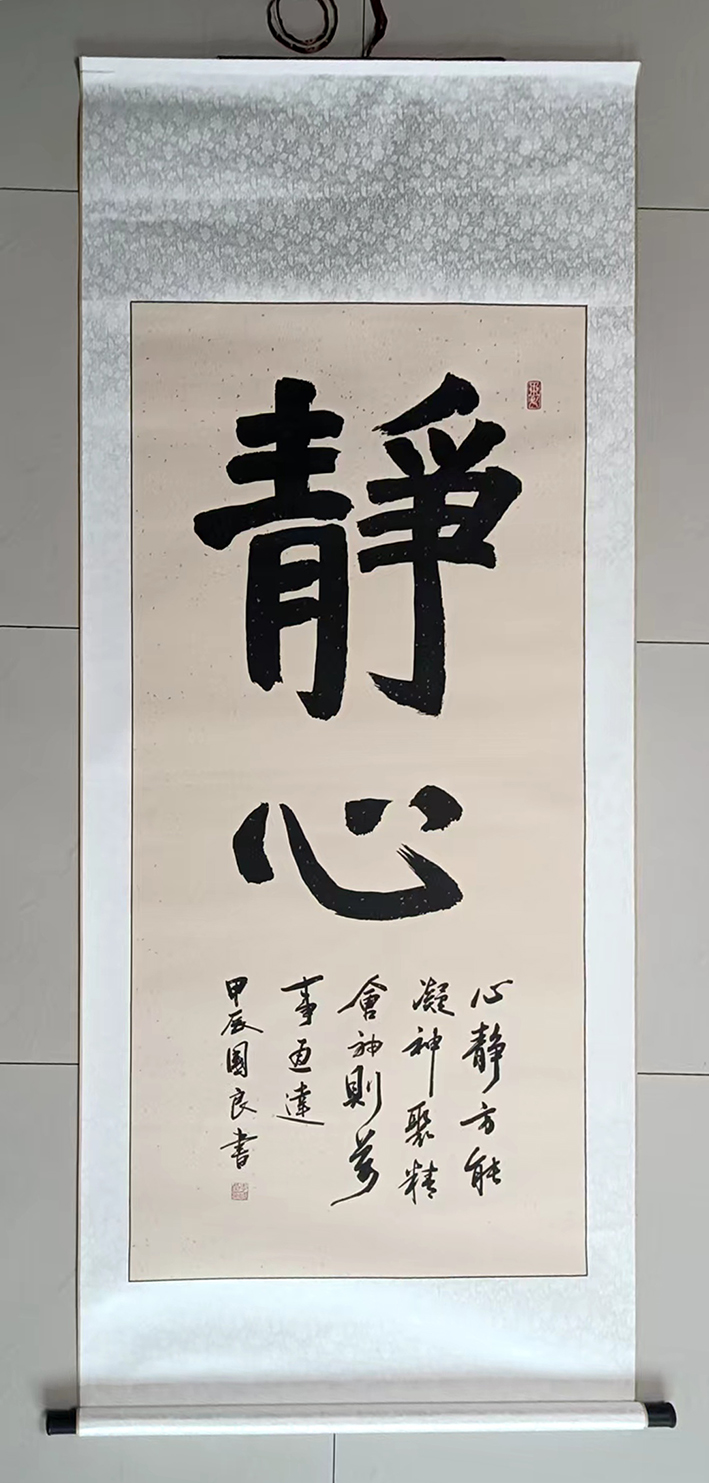 靜心
心靜方能
凝神聚精
會神則萬
事通達
甲辰國良書